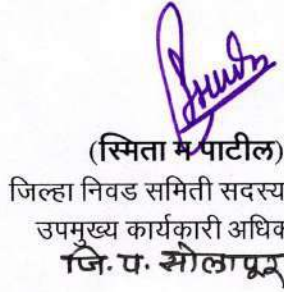 (स्मिता म पाटील)
जिल्हा निवड समिती सदस्य
उपमुख्य कार्यकारी अधिक
जि. प. सोलापूर